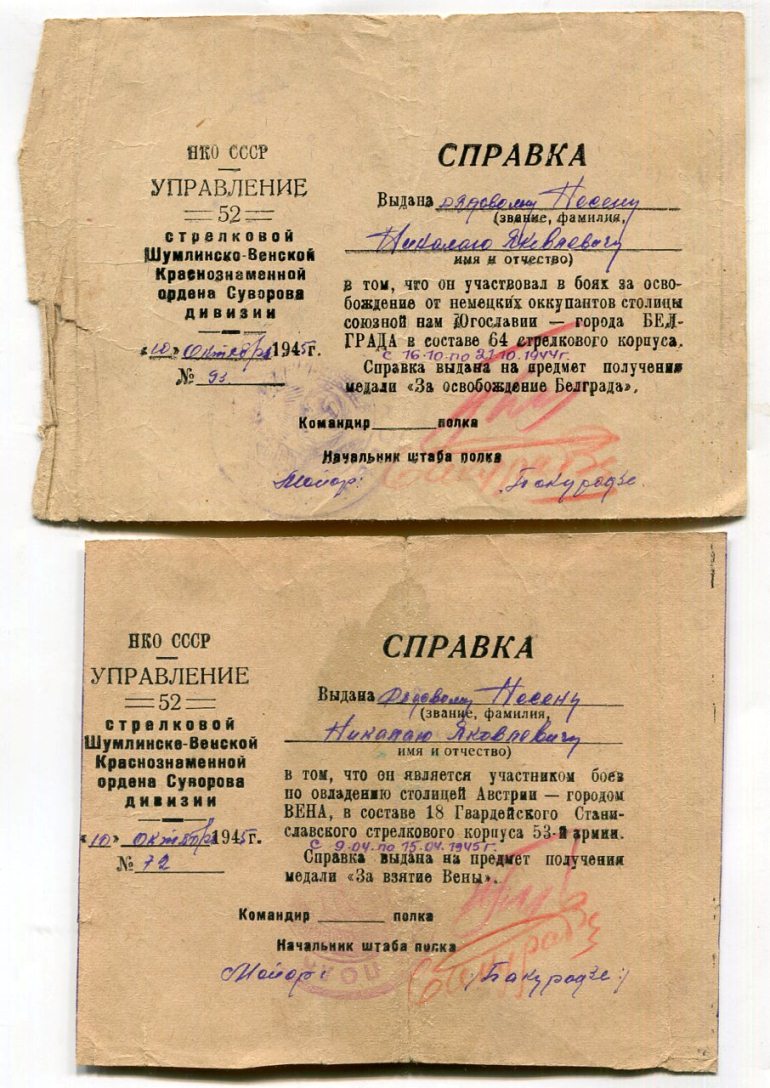 НКО СССР
УПРАВЛЕНИЕ
52
стрелковой
Шумлинско-Венской
Краснознаменной
ордена Суворова
дивизии
"10" октября 1945г.
№ 93
СПРАВКА
Выдана рядовому Носену
(звание, фамилия,
Николаю Яковлевичу
имя и отчество)
в том, что он участвовал в боях за осво-
бождение от немецких оккупантов столицы
союзной нам Югославии — города БЕЛ-
ГРАДА в составе 64 стрелкового корпуса.
с 16.10. по 21.10. 1944г.
Справка выдана на предмет получения
медали «За освобождение Белграда».
Командир полка
Начальник штаба полка
Майор: Бакурадзе
НКО СССР
УПРАВЛЕНИЕ
52
стрелковой
Шумлинско-Венской
Краснознаменной
ордена Суворова
дивизии
"10" октября 1945г.
№ 72
СПРАВКА
Выдана Рядовому Носену
(звание, фамилия,
Николаю Яковлевичу
имя и отчество)
в том, что он является участником боев
по овладению столицей Австрии — городом
ВЕНА, в составе 18 Гвардейского Стани-
славского стрелкового корпуса 53-й армии.
с 9.04. по 15.04. 1945г.
Справка выдана на предмет получения
медали «За взятие Вены».
Командир полка
Начальник штаба полка
Майор: /Бакурадзе/